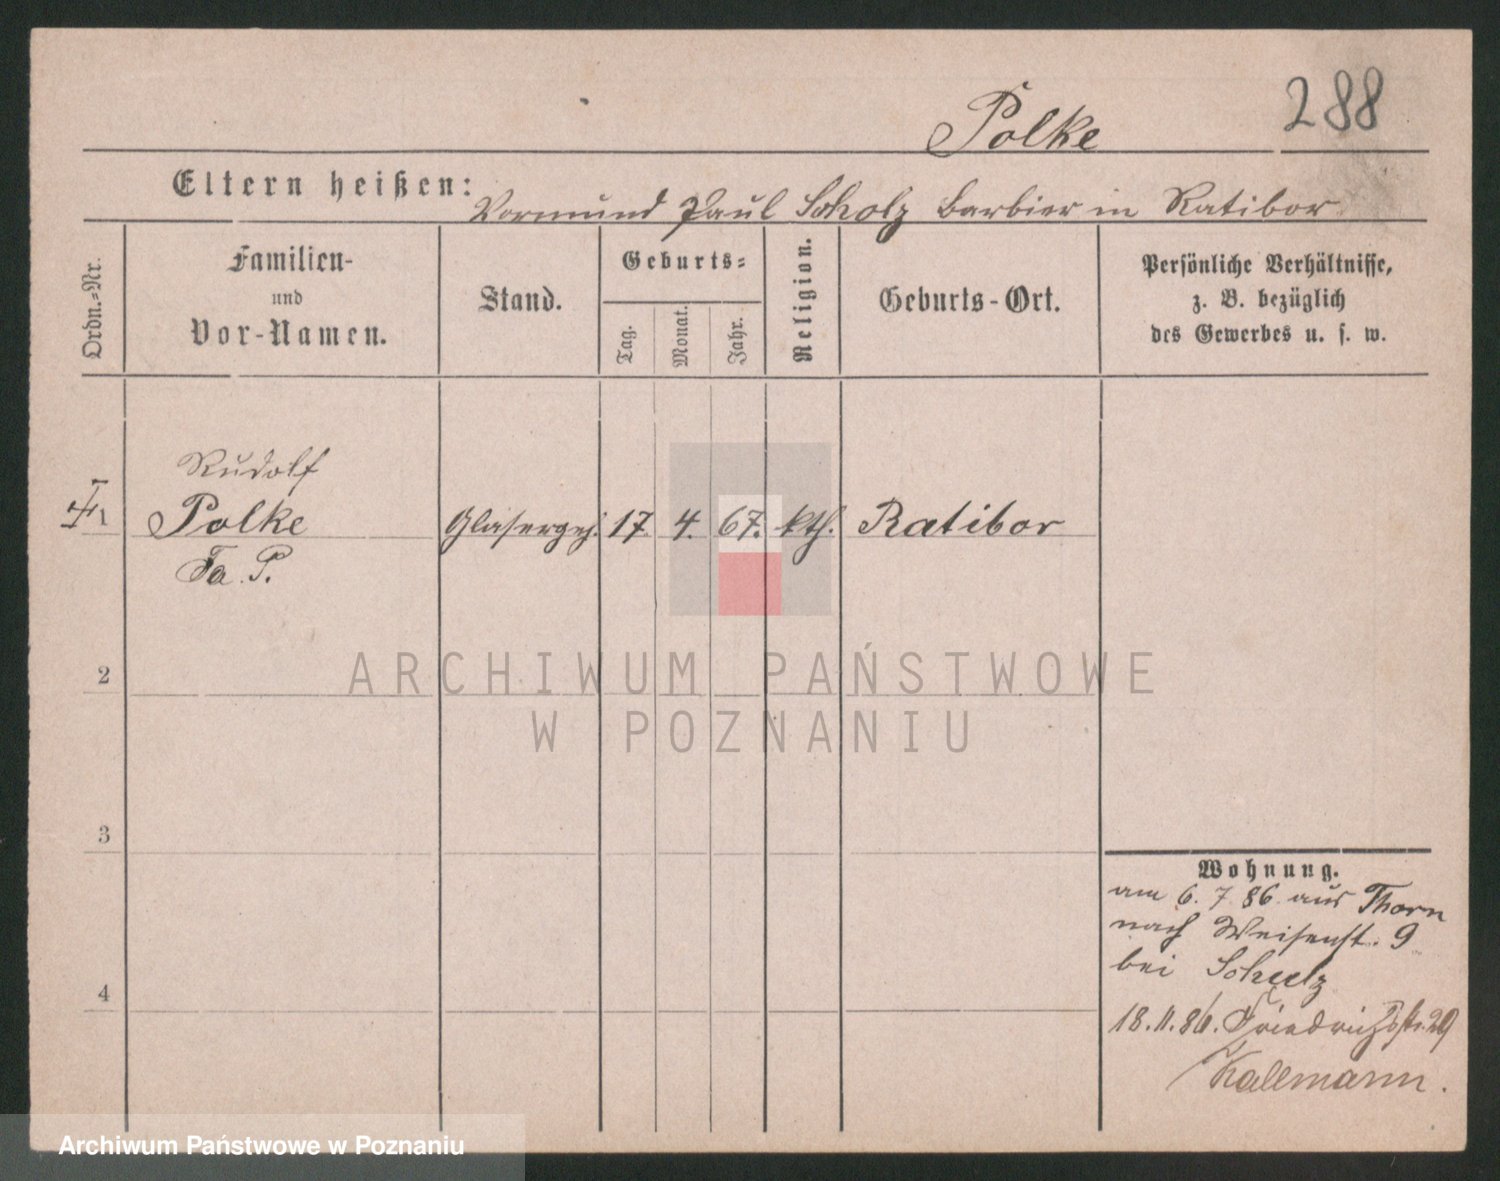 Polke
288
Eltern heißen: Vormund Paul Scholz Barbier in Ratibor
Ordn.-Nr.
Familien-
und
Vor-Namen.
Stand.
Geburts-
Tag.
Monat.
Jahr.
Religion.
Geburts-Ort.
Persönliche Verhältnisse,
z. B. bezüglich
des Gewerbes u. s. w.
Rudolf
1 Polke Glaserges. 17. 4. 67. kth. Ratibor
Fa. P.
2
3
4
Wohnung.
am 6. 7. 86 aus Thorn
nach Weisenst. 9
bei Schulz
18.11.86. Friedrichstr. 29
Kallmann.
ARCHIWUM PAŃSTWOWE
W POZNANIU
Archiwum Państwowe w Poznaniu